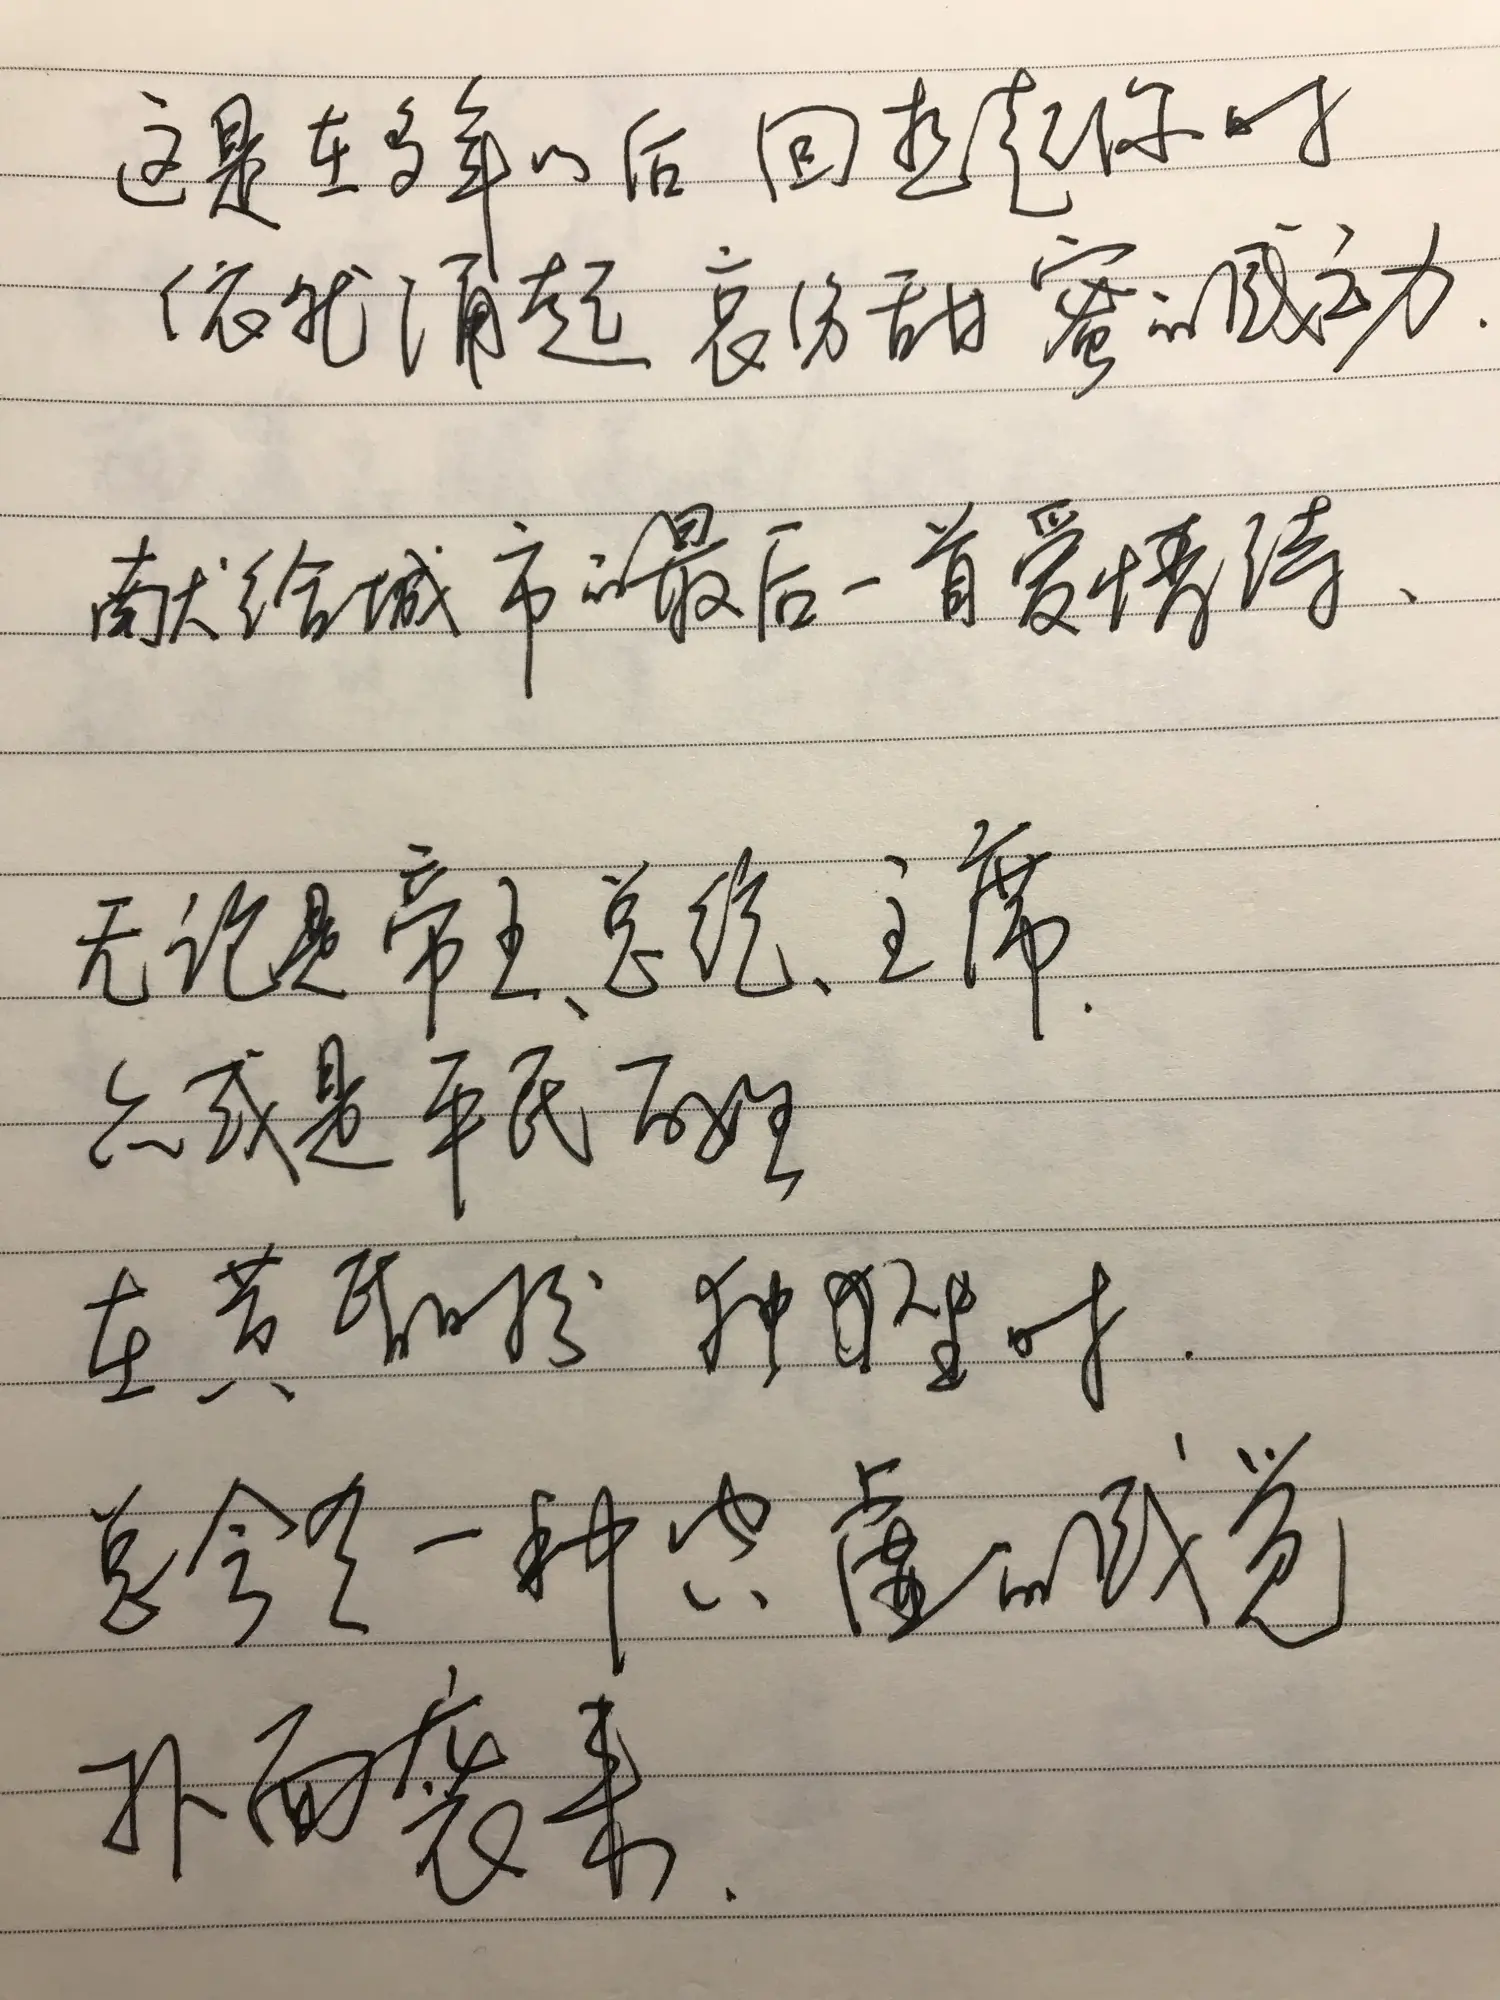 这是在多年以后 回想起你时
依然涌起 哀伤甜蜜的感动.
献给城市的最后一首爱情诗、
无论是帝王、总统、主席.
亦或是平民百姓
在黄昏时分 独自醒时.
总会有一种空虚的感觉
扑面袭来.